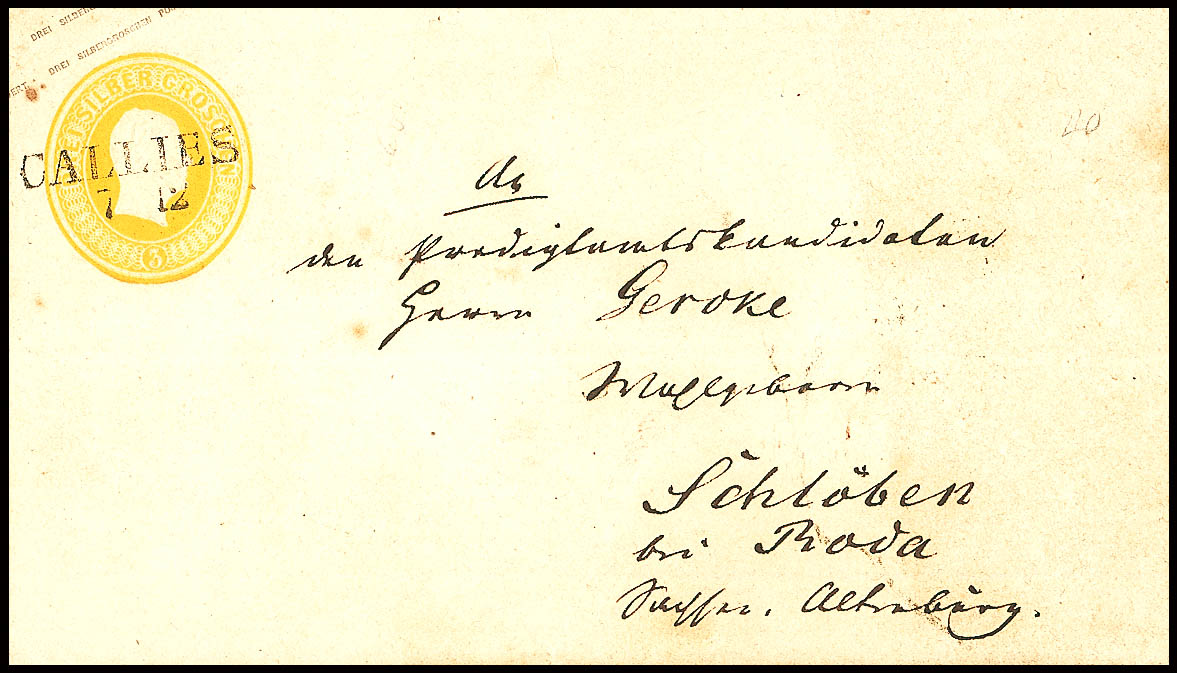 DREI SILBERG
DREI SILBERGROSCHEN POS
ERT.
DREI SILBER GROSCHEN
3
CALLIES
7 12
An
den Predigtamtskandidaten
Herrn Gercke
Wohlgeboren
Schlöben
bei Roda
Sachsen. Altenburg.